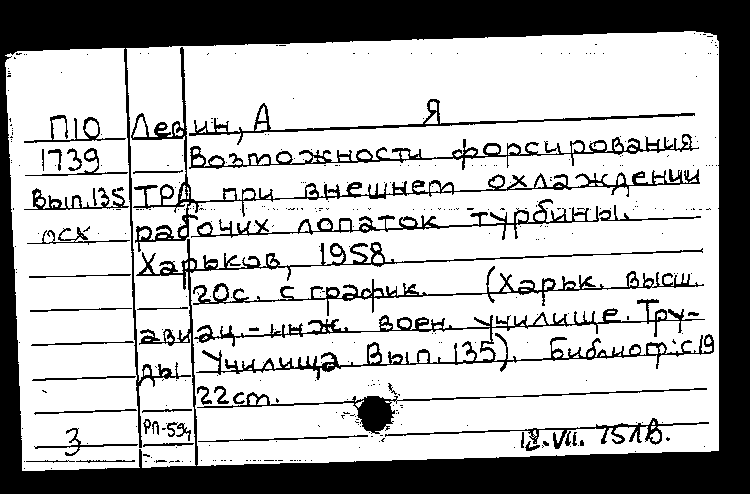 П10 Левин, А Я
1739 Возможности форсирования
Вып.135 ТРД при внешнем охлаждении
осх рабочих лопаток турбины.
Харьков, 1958.
20с. с график. (Харьк. высш.
авиац.-инж. воен. училище. Тру-
ды Училища. Вып. 135). Библиогр: с.19
22см.
3 РП-594
12.VII. 75